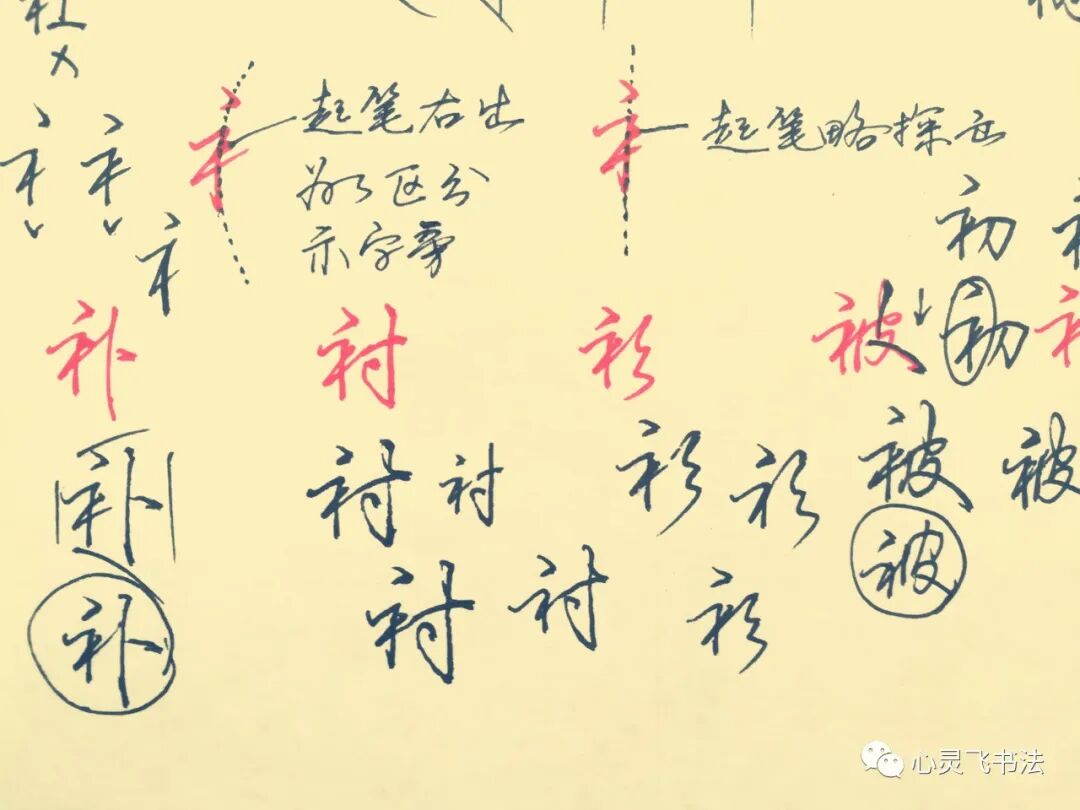 起笔右出
为了区分
示字旁
起笔略探出
初
补 衬 衫 被 初
补 衬 衬 衫 衫 被 被
补 衬 衬 衫 被
心灵飞书法